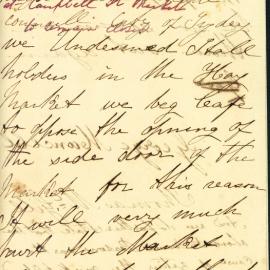 at Campbell St Markets
to remain closed
of Sydey
we Undesined Stall
holders in the Hay
Market we beg leafe
to oppose the opning of
the side door of the
Market for this reason
it will very much
hurt the Market